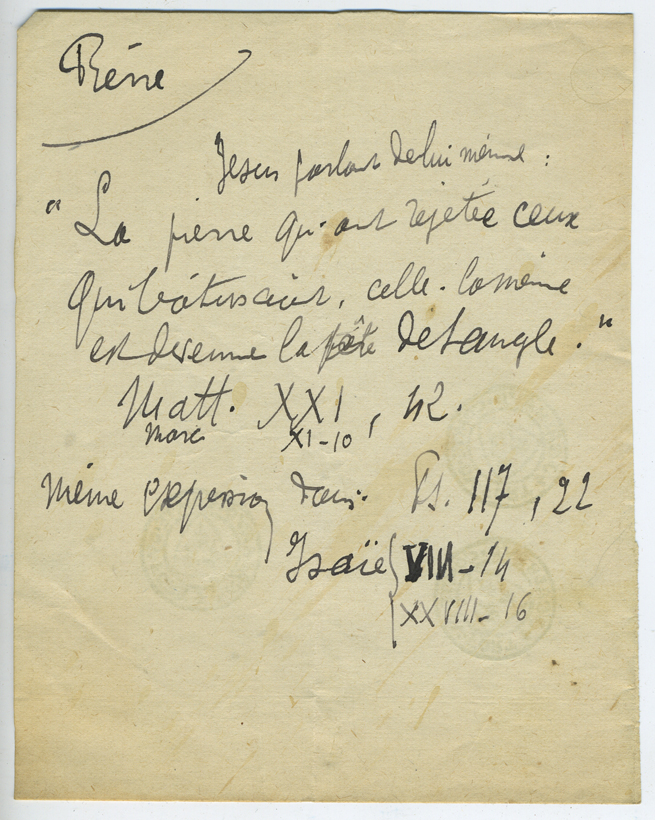 Pierre
Jesus parlant de lui même :
"La pierre qu'ont rejetée ceux
qui bâtissaient, celle-là même
est devenue la tête de l'angle."
Matt. XXI, 42.
Marc XI-10
même expression dans Ps. 117, 22
Isaïe VIII-14
XXVIII-16